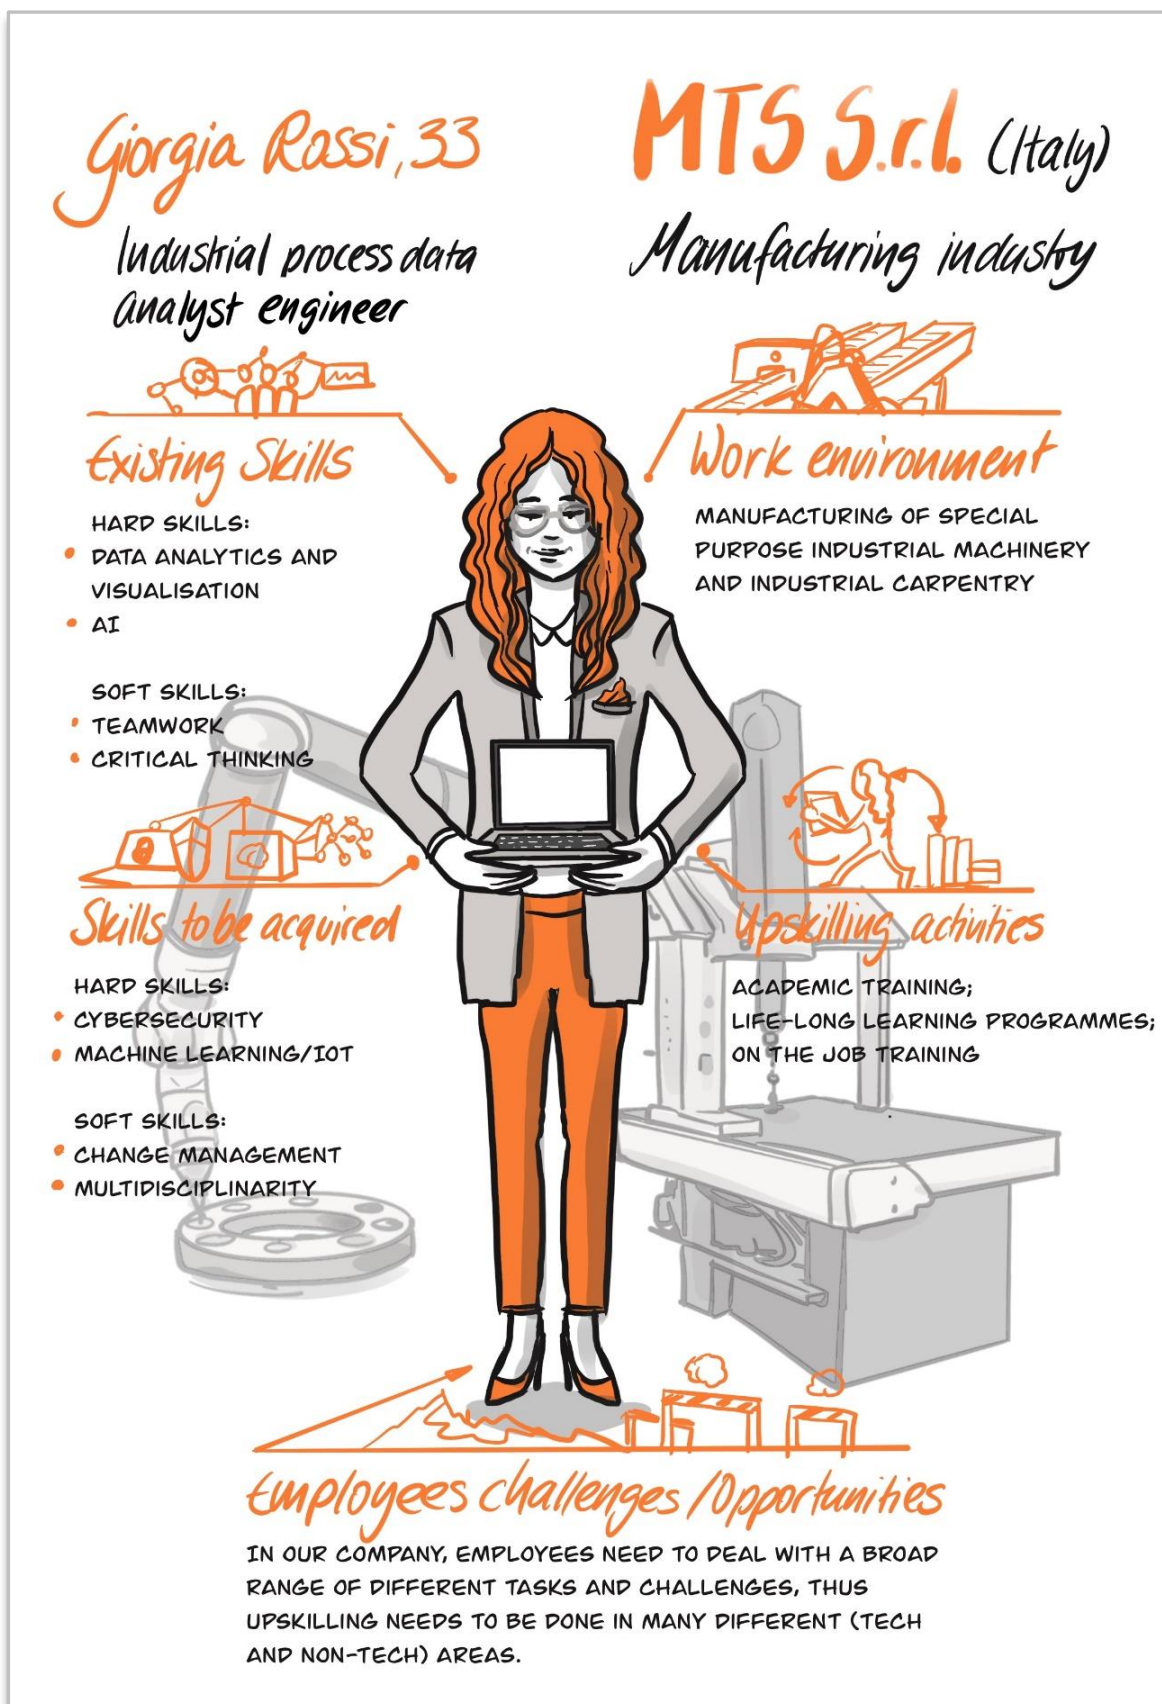 Giorgia Rossi, 33
Industrial process data
analyst engineer
MTS S.r.l. (Italy)
Manufacturing industry
Existing Skills
HARD SKILLS:
• DATA ANALYTICS AND
VISUALISATION
• AI
SOFT SKILLS:
• TEAMWORK
• CRITICAL THINKING
Work environment
MANUFACTURING OF SPECIAL
PURPOSE INDUSTRIAL MACHINERY
AND INDUSTRIAL CARPENTRY
Skills to be acquired
HARD SKILLS:
• CYBERSECURITY
• MACHINE LEARNING/IOT
SOFT SKILLS:
• CHANGE MANAGEMENT
• MULTIDISCIPLINARITY
Upskilling activities
ACADEMIC TRAINING;
LIFE-LONG LEARNING PROGRAMMES;
ON THE JOB TRAINING
Employees challenges/Opportunities
IN OUR COMPANY, EMPLOYEES NEED TO DEAL WITH A BROAD
RANGE OF DIFFERENT TASKS AND CHALLENGES, THUS
UPSKILLING NEEDS TO BE DONE IN MANY DIFFERENT (TECH
AND NON-TECH) AREAS.